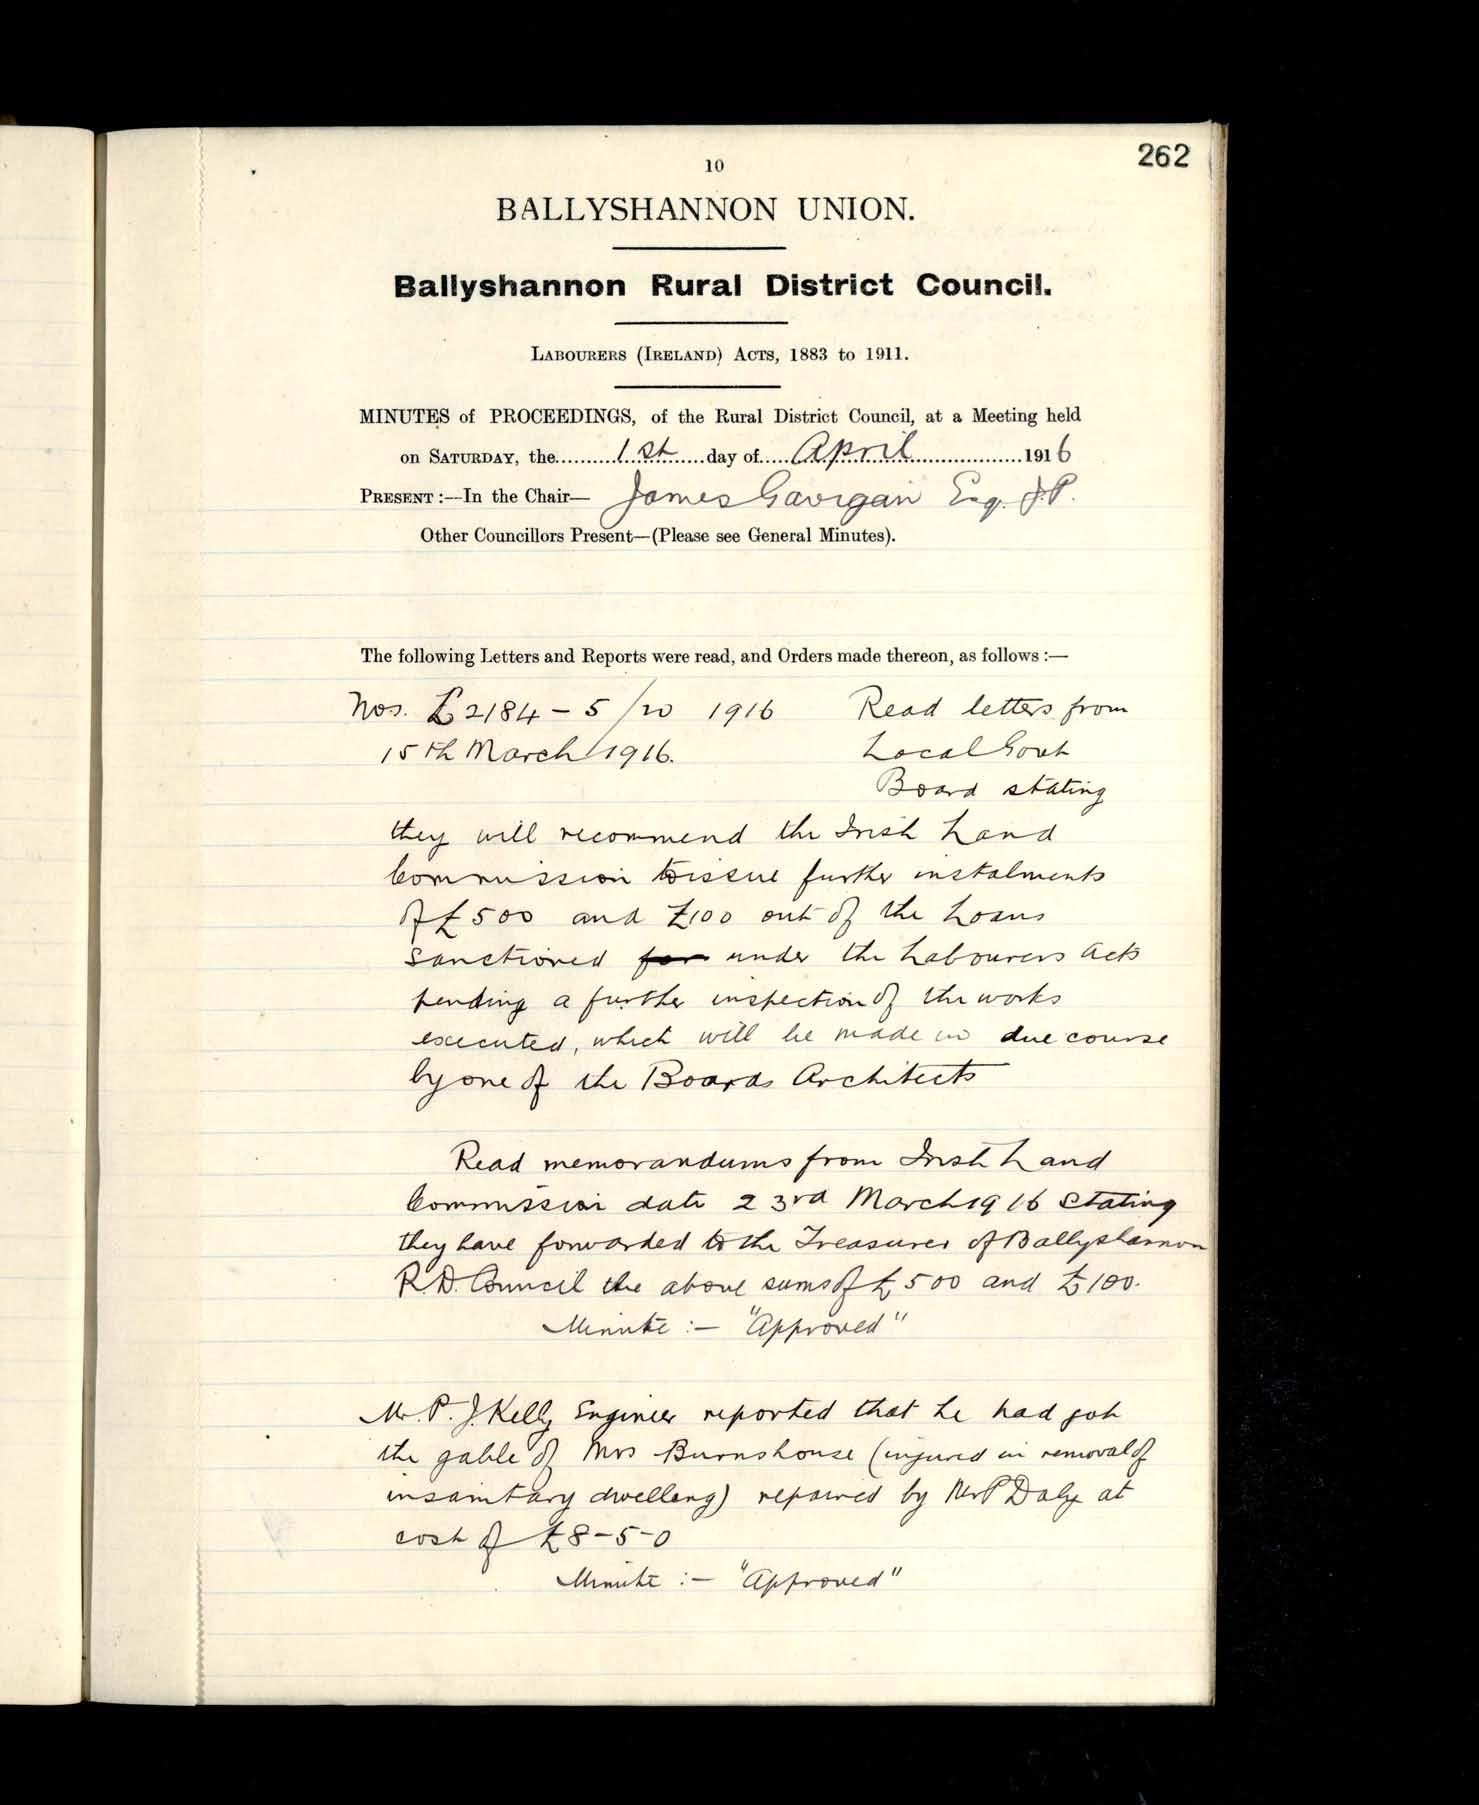 262
10
BALLYSHANNON UNION.
Ballyshannon Rural District Council.
LABOURERS (IRELAND) ACTS, 1883 to 1911.
MINUTES of PROCEEDINGS, of the Rural District Council, at a Meeting held
on SATURDAY, the..........1st.......day of.....April......................1916
PRESENT :—In the Chair— James Gavigan Esq. J.P.
Other Councillors Present—(Please see General Minutes).
The following Letters and Reports were read, and Orders made thereon, as follows :—
Nos. £2184 - 5/20 1916 Read letters from
15th March 1916. Local Govt
Board stating
they will recommend the Irish Land
Commission to issue further instalments
of £500 and £100 out of the Loans
sanctioned for under the Labourers Acts
pending a further inspection of the works
executed, which will be made in due course
by one of the Boards Architects
Read memorandums from Irish Land
Commission date 23rd March 1916 stating
they have forwarded to the Treasurer of Ballyshannon
R.D. Council the above sums of £500 and £100.
Minute :- "Approved"
Mr. P. J. Kelly Engineer reported that he had got
the gable of Mrs Burns house (injured in removal of
insanitary dwelling) repaired by Mr P Daly at
cost of £8-5-0
Minute :- "Approved"